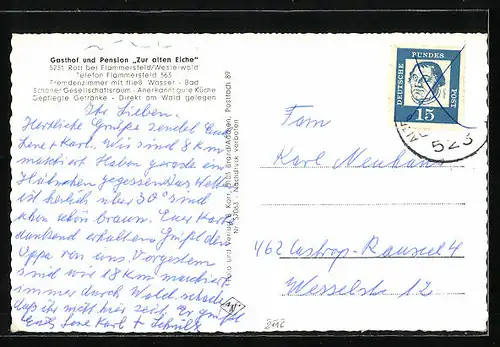 Gasthof und Pension „Zur alten Eiche"
5231 Rott bei Flammersfeld/Westerwald
Telefon Flammersfeld 363
Fremdenzimmer mit fließ. Wasser - Bad
Schöner Gesellschaftsraum - Anerkannt gute Küche
Gepflegte Getränke - Direkt am Wald gelegen
Ihr Lieben.
Herzliche Grüße sendet Euch
Lene + Karl. Wir sind 8 km
marschiert Haben gerade ein
Hähnchen gegessen Das Wetter
ist herlich über 30° sind
schon schön braun. Eure Karte
dankend erhalten Grüßt den
Oppa von uns Vorgestern
sind wir 18 km marschiert
immer durch Wald. schade
daß ihr nicht hier seid. Es grüßt
Euch Lene Karl +
Foto und Verlag B. Korr, 5105 Brand/Aachen, Postfach 89
Nr. 37063 Nachdruck verboten
DEUTSCHE BUNDESPOST
15
523
Fam
Karl Neuhaus
462 Castrop-Rauxel 4
Wesselstr 12